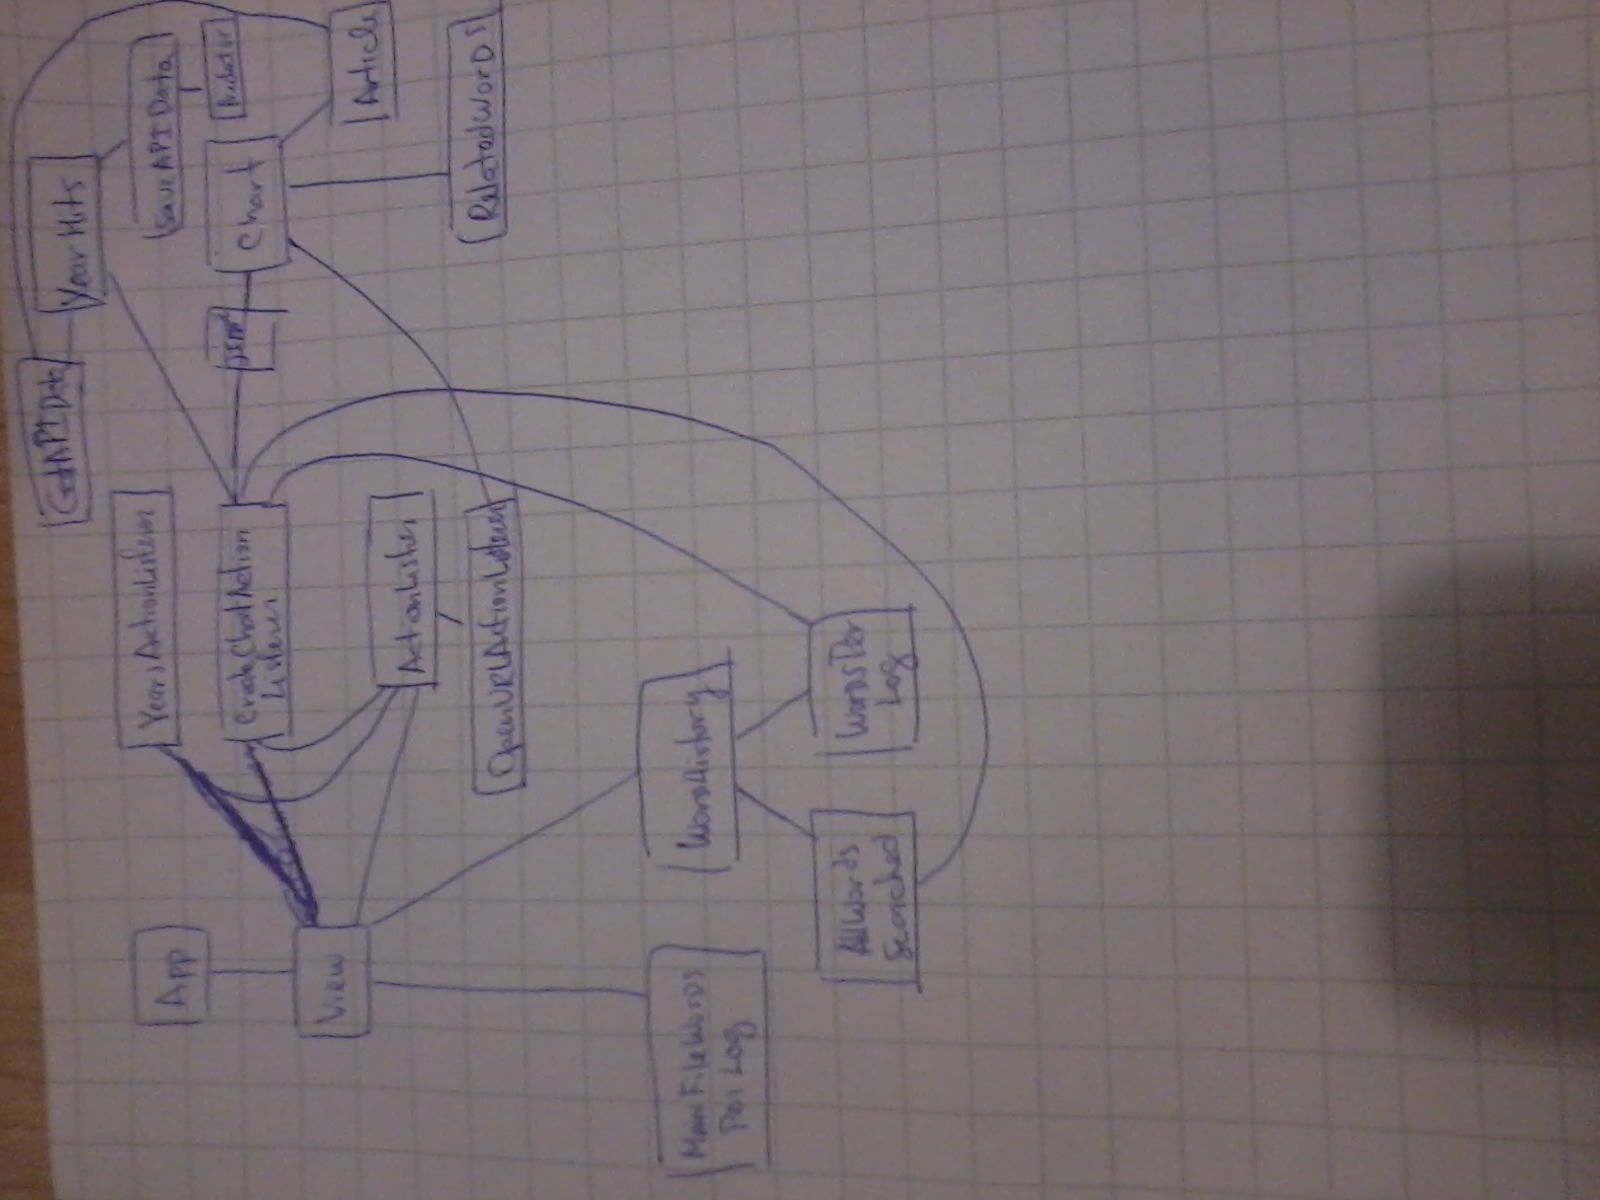 GetAPIData
YearHits
YearsActionListener
App
SaveAPIData
CreateChartAction
Listener
Chart
View
Article
ActionListener
OpenURLActionListener
RelatedWords
FileWords
Per Log
WordHistory
AllWords
Searched
WordsPer
Log